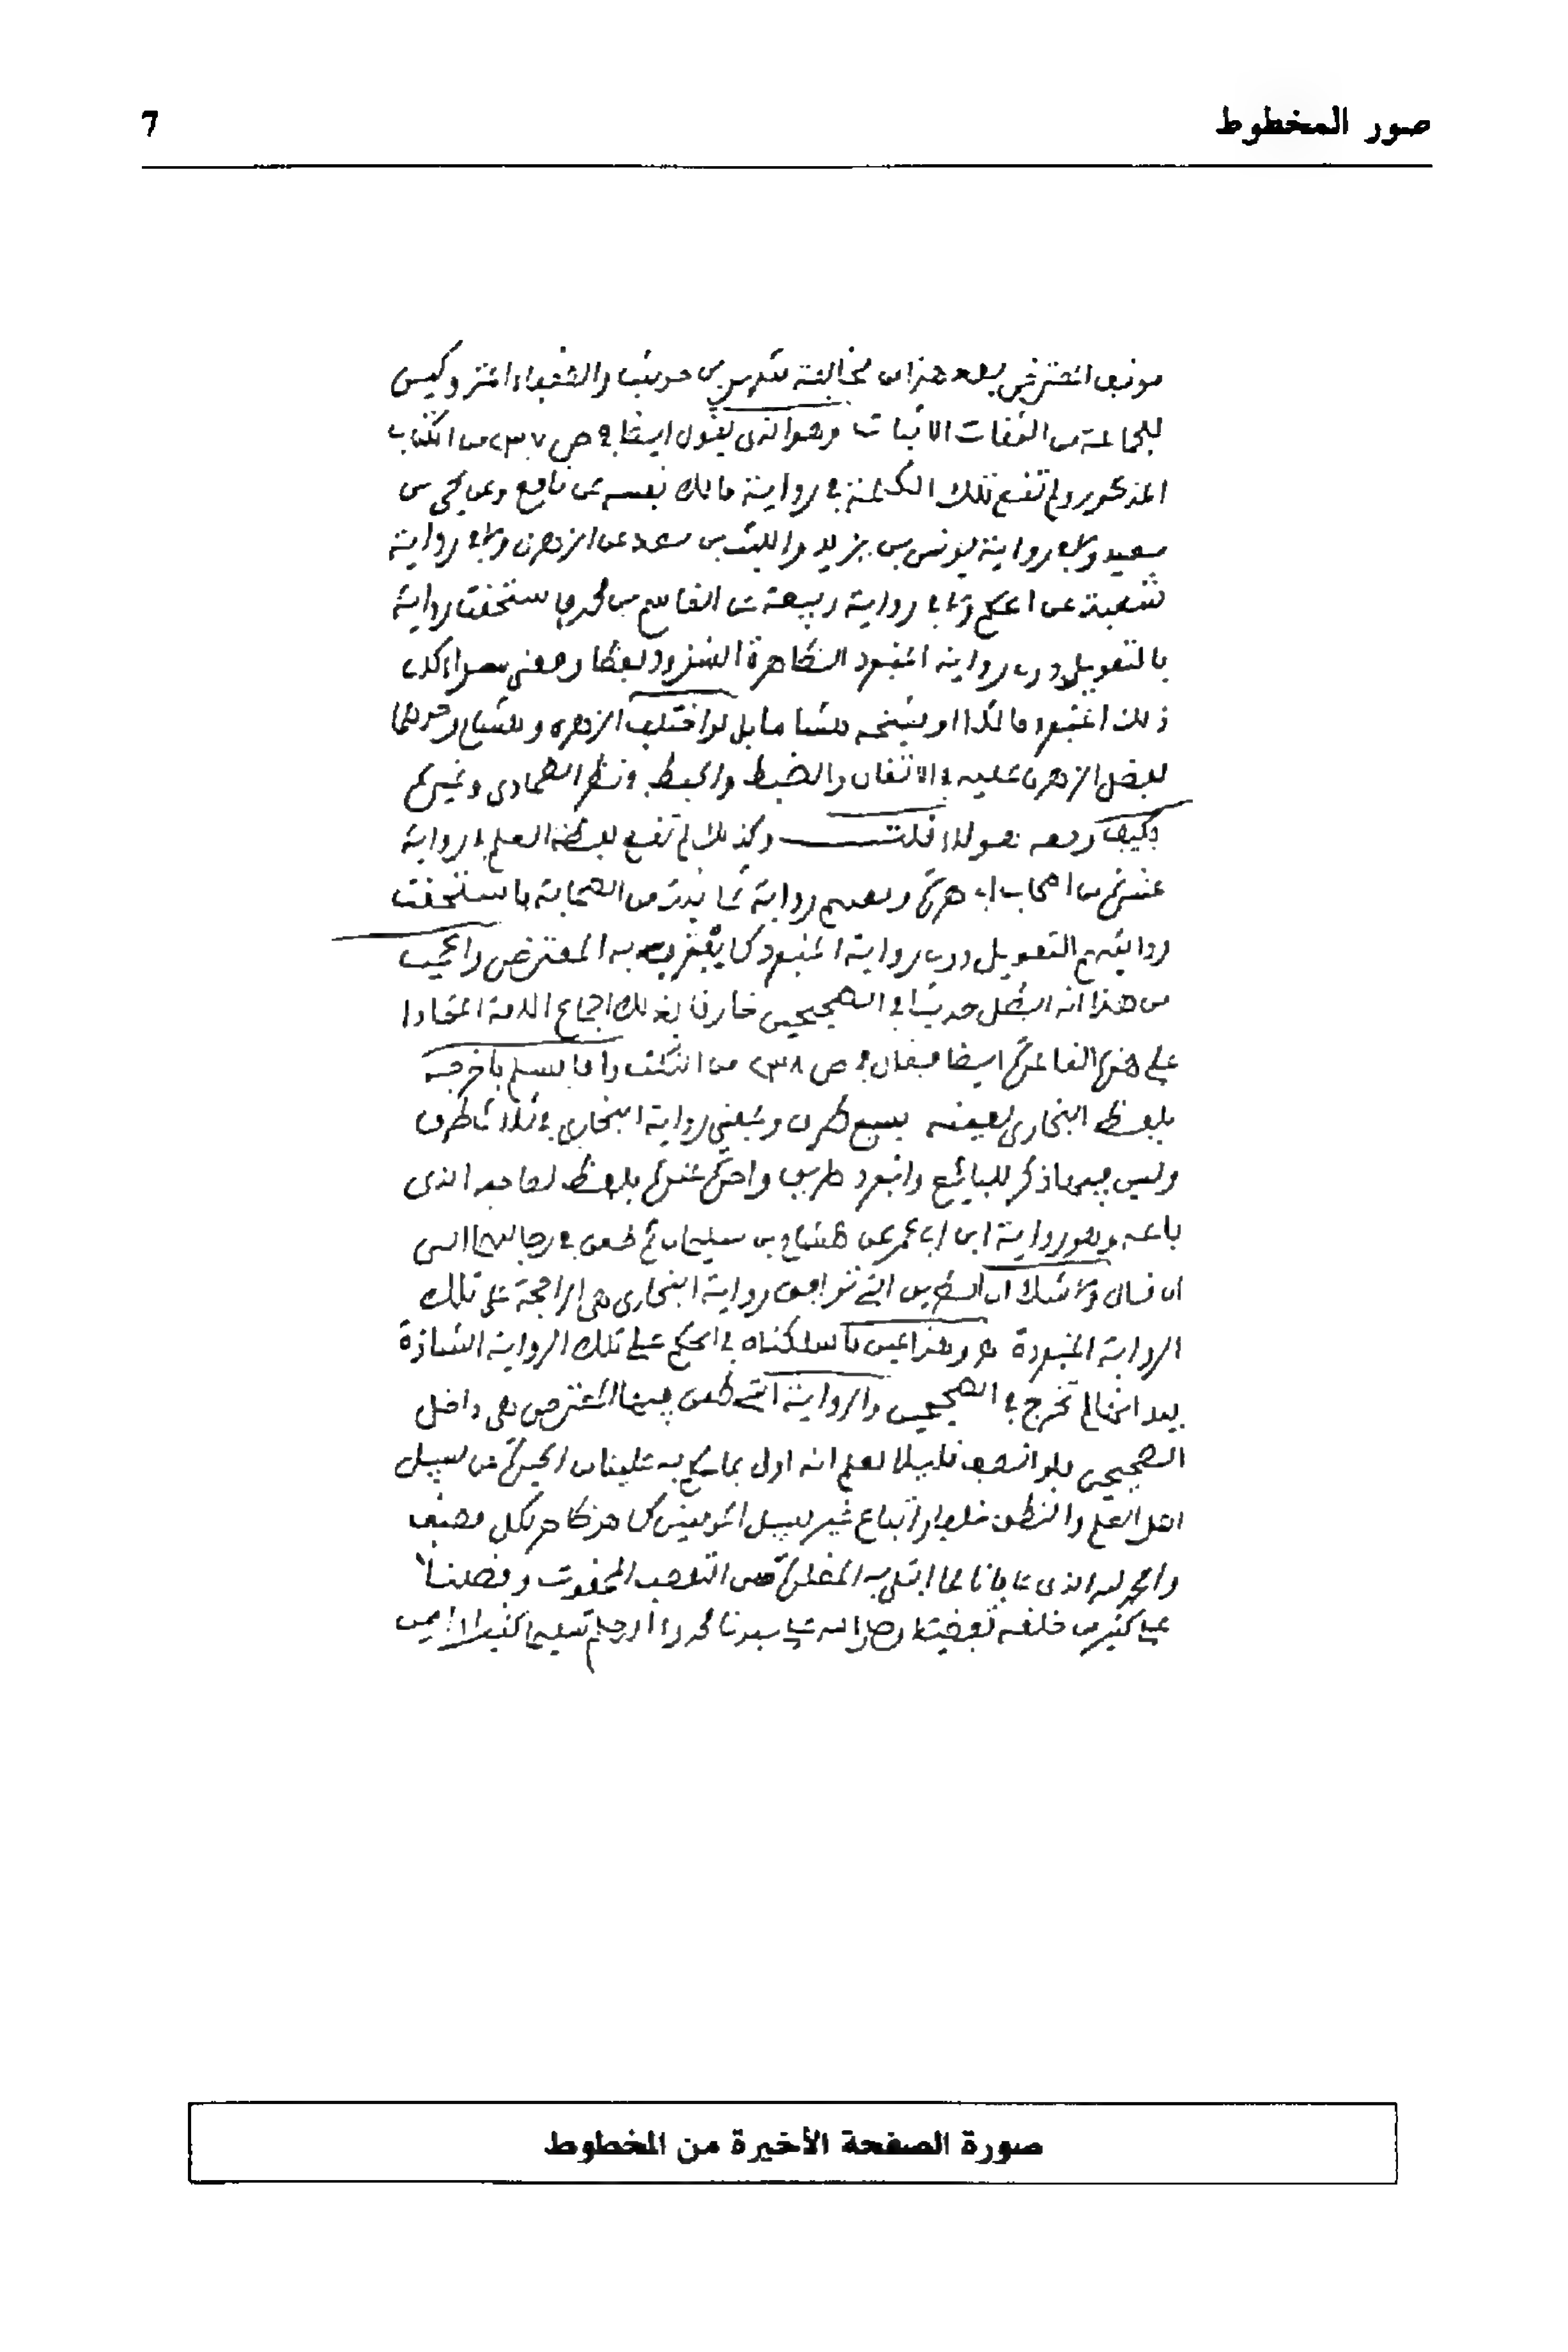 صور المخطوط
7
المعترض بعد هذا من مخالفة من حديث والضعفاء المتروكين
للجماعة من الثقات الاثبات وهو الذي يقول ايضا في ص ٧ من الكتاب
المذكور ولم تقع تلك الكلمة في رواية مالك نفسه عن نافع وعن يحيى بن
سعيد ولا في رواية يونس بن يزيد والليث بن سعد عن الزهري ولا في رواية
شعبة عن الحكم ولا في رواية ربيعة عن القاسم بن محمد فاستحقت رواية
بالتعويل دون رواية الظاهرة الشذوذ لفظا ومعنى سواء اكان
ذلك مالكا او شيخه هشاما بل لو اختلف الزهري وهشام
لفضل الزهري عليه في الاتقان والضبط والحفظ ونظر الطحاوي وغيره
فكيف ومعه هؤلاء قلت وكذلك لم تقع لفظة العلم في رواية
عشرة من اصحاب ابي هريرة ومعهم رواية ثمانية من الصحابة فاستحقت
روايتهم التعويل دون رواية كما يعترف به المعترض والعجيب
من هذا انه ابطل حديثا في الصحيحين خارقا بذلك اجماع الامة اعتمادا
على هذه القاعدة ايضا فقال في ص ٣٨ من الكتاب واما مسلم فاخرجه
بلفظ البخاري بعينه بسبع طرق ويعني رواية البخاري في ثلاث طرق
وليس فيها ذكر للبائع وانفرد طريق واحد عنده بلفظ لصاحبه الذي
باعه وهو رواية ابن ابي عمر عن هشام بن سليمان ثم طعن في رجالها الى
ان قال ولا شك ان الطريق التي توافق رواية البخاري هي الراجحة على تلك
الرواية المنفردة هـ وهذا عين ما سلكناه في الحكم على تلك الرواية الشاذة
بيد انها لم تخرج في الصحيحين والرواية التي طعن فيها المعترض هي داخل
الصحيحين فلو انصف قليلا لعلم انه اولى بما حكم به علينا من الحيدة عن سبيل
اهل العلم والنظر واتباع غير سبيل المومنين كما هو ظاهر لكل منصف
والحمد لله الذي عافانا مما ابتلى به المقلدة من التعصب الممقوت وفضلنا
على كثير من خلقه تفضيلا وصلى الله على سيدنا محمد واله وسلم تسليما كثيرا امين
صورة الصفحة الأخيرة من المخطوط